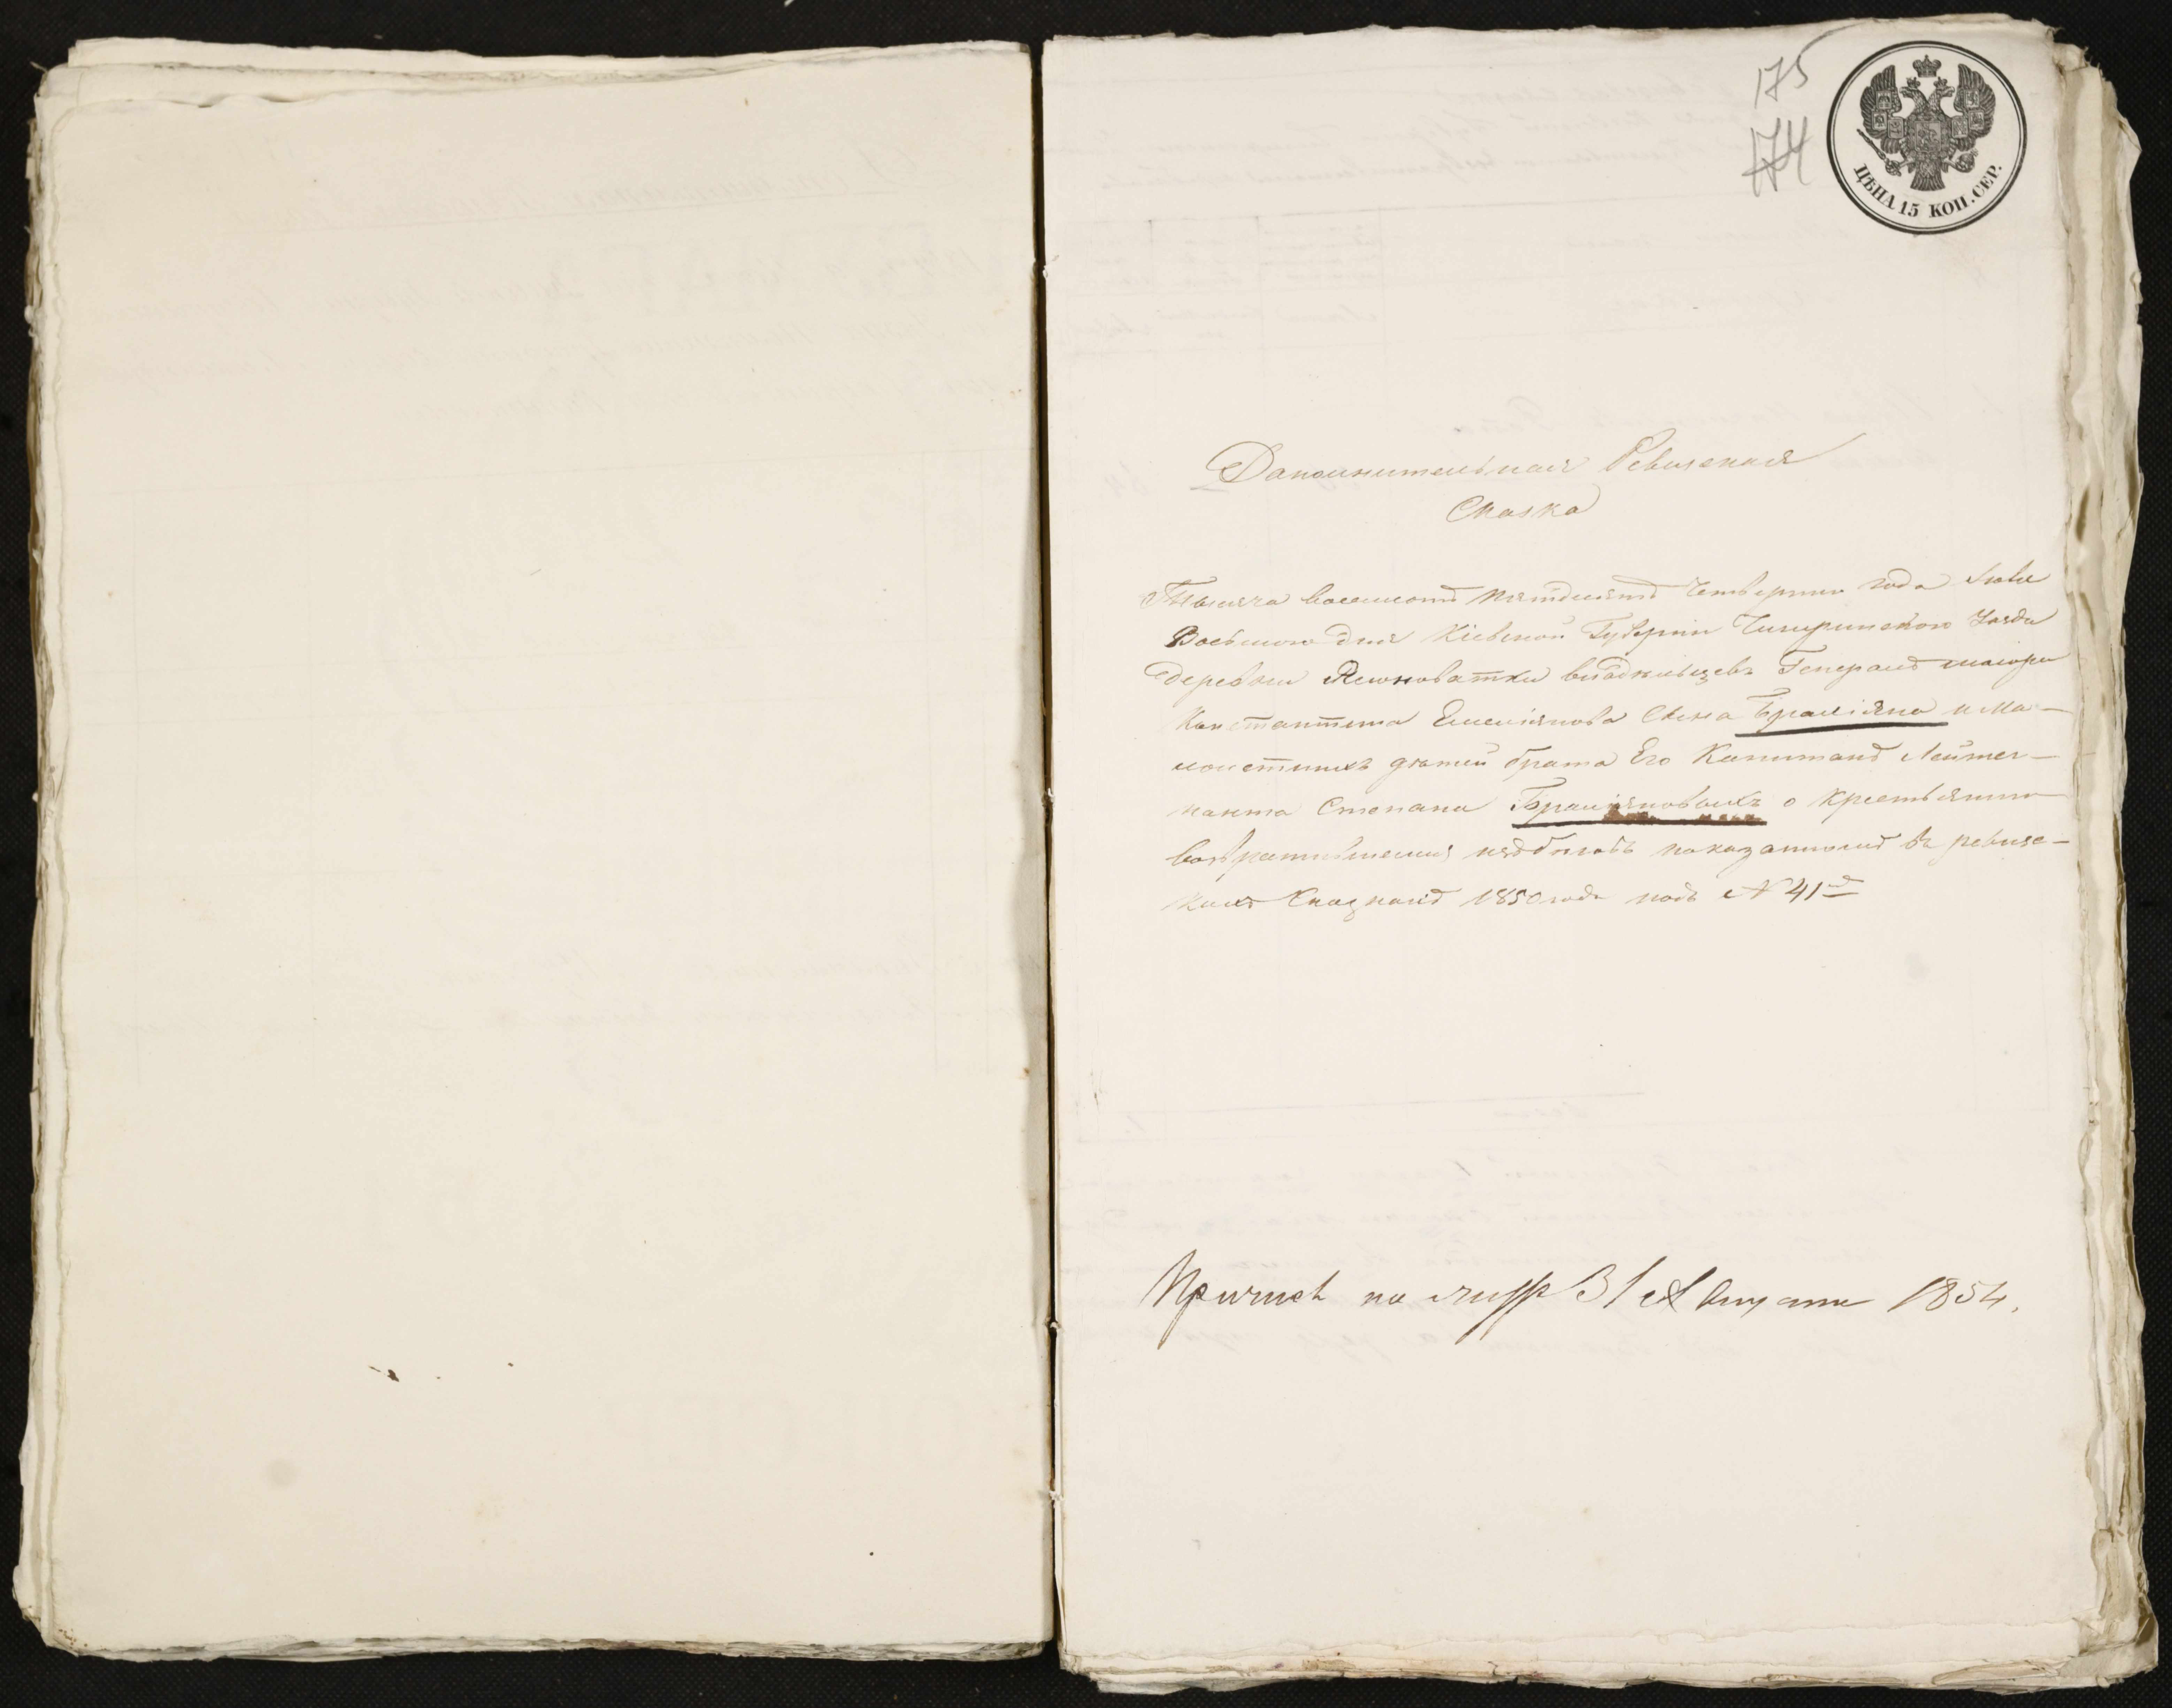 175
174
ЦѢНА 15 КОП. СЕР.
Дополнительная Ревизская
Сказка
Тысяча восемсотъ пятдесятъ четвертого года Июля
Восьмого дня Кіевской Губерніи Чигиринскаго Уезда
деревни Ясноватки владѣльцевъ Генералъ маіора
Константина Емеліянова Сына Браиліяна и Ма-
лолетнихъ дѣтей брата Его Капитанъ Лейтен-
нанта Степана Браиліяновыхъ о крестьянине
возвратившемся изъ бѣговъ показанномъ въ ревизс-
кихъ Сказкахъ 1850 года подъ № 41
Причисл по 31 Августа 1854.